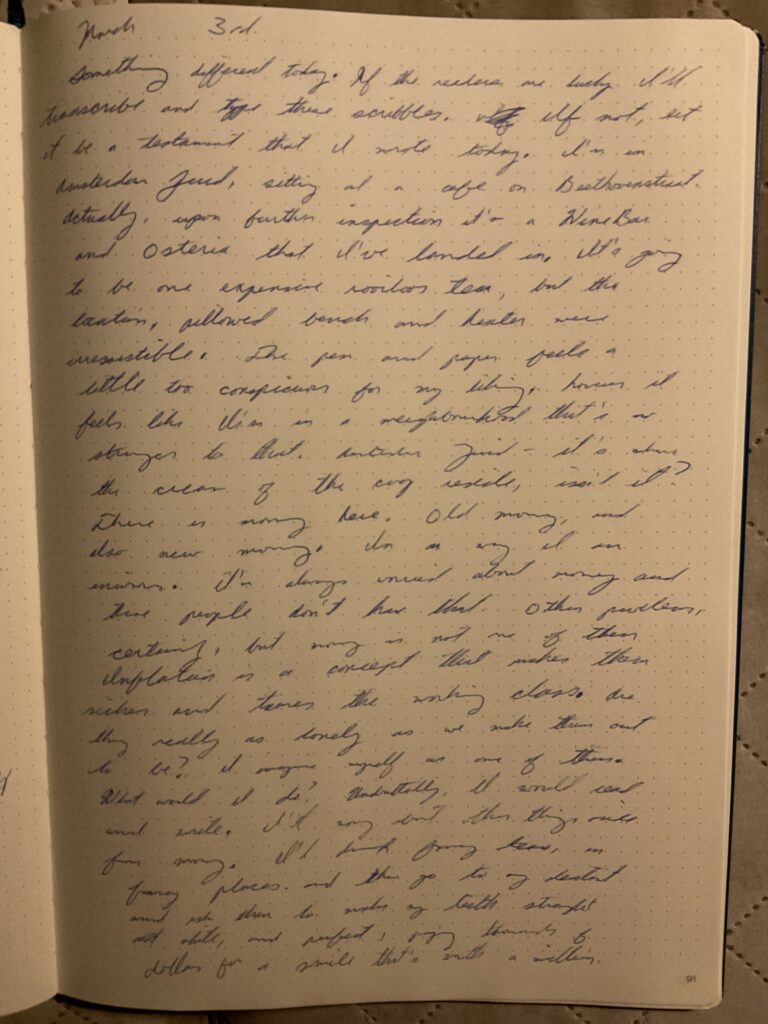 March 3rd.
Something different today. If the readers are lucky I'll
transcribe and type these scribbles. If not, let
it be a testament that I wrote today. I'm in
Amsterdam Zuid, sitting at a cafe on Beethovenstraat.
Actually, upon further inspection it's a Wine Bar
and Osteria that I've landed in. It's going
to be one expensive rooibos tea, but the
location, pillowed bench and heater were
irresistible. The pen and paper feels a
little too conspicuous for my liking, however it
feels like I'm in a neighbourhood that's no
stranger to that. Amsterdam Zuid - it's where
the cream of the crop reside, isn't it?
There is money here. Old money, and
also new money. In a way I am
envious. I'm always worried about money and
these people don't have that. Other problems,
certainly, but money is not one of them.
Inflation is a concept that makes them
richer and the working class. Are
they really as lonely as we make them out
to be? I imagine myself as one of them.
What would I do? Undoubtedly, I would read
and write. I'd but other things aside
from money. I'd drink fancy teas, in
fancy places. and then go to my dentist
and ask them to make my teeth straight
and white, and perfect, paying thousands of
dollars for a smile that's worth a million.
91